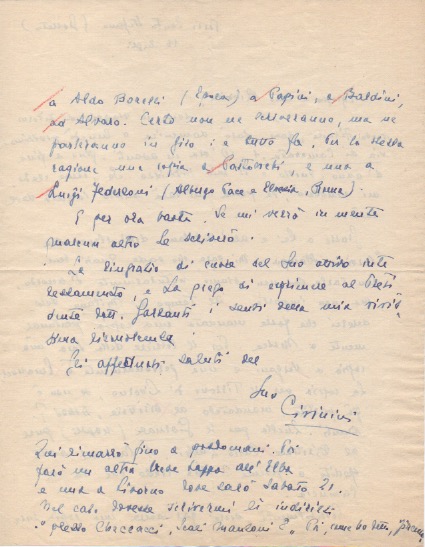 a Aldo Borelli (Epoca) a Papini, a Baldini,
ad Alvaro. Certo non ne scriveranno, ma ne
parleranno in giro: e tutto fa. Per la stessa
ragione una copia a Pastonchi e una a
Luigi Federzoni (Albergo Pace e Elvezia, Roma).
E per ora basta. Se mi verrà in mente
qualcun altro Le scriverò.
La ringrazio di cuore del Suo attivo inte
ressamento, e La prego di esprimere al Presi
dente dott. Garzanti i sensi della mia vivis
sima riconoscenza.
Gli affettuosi saluti del
Suo
Civinini
Qui rimarrò fino a posdomani. Poi
farò un'altra breve tappa all'Elba
e una a Livorno dove sarò Sabato 21.
Nel caso dovesse scrivermi lì indirizzi
presso Checcacci, Scali Manzoni 2. Poi, come ho detto,